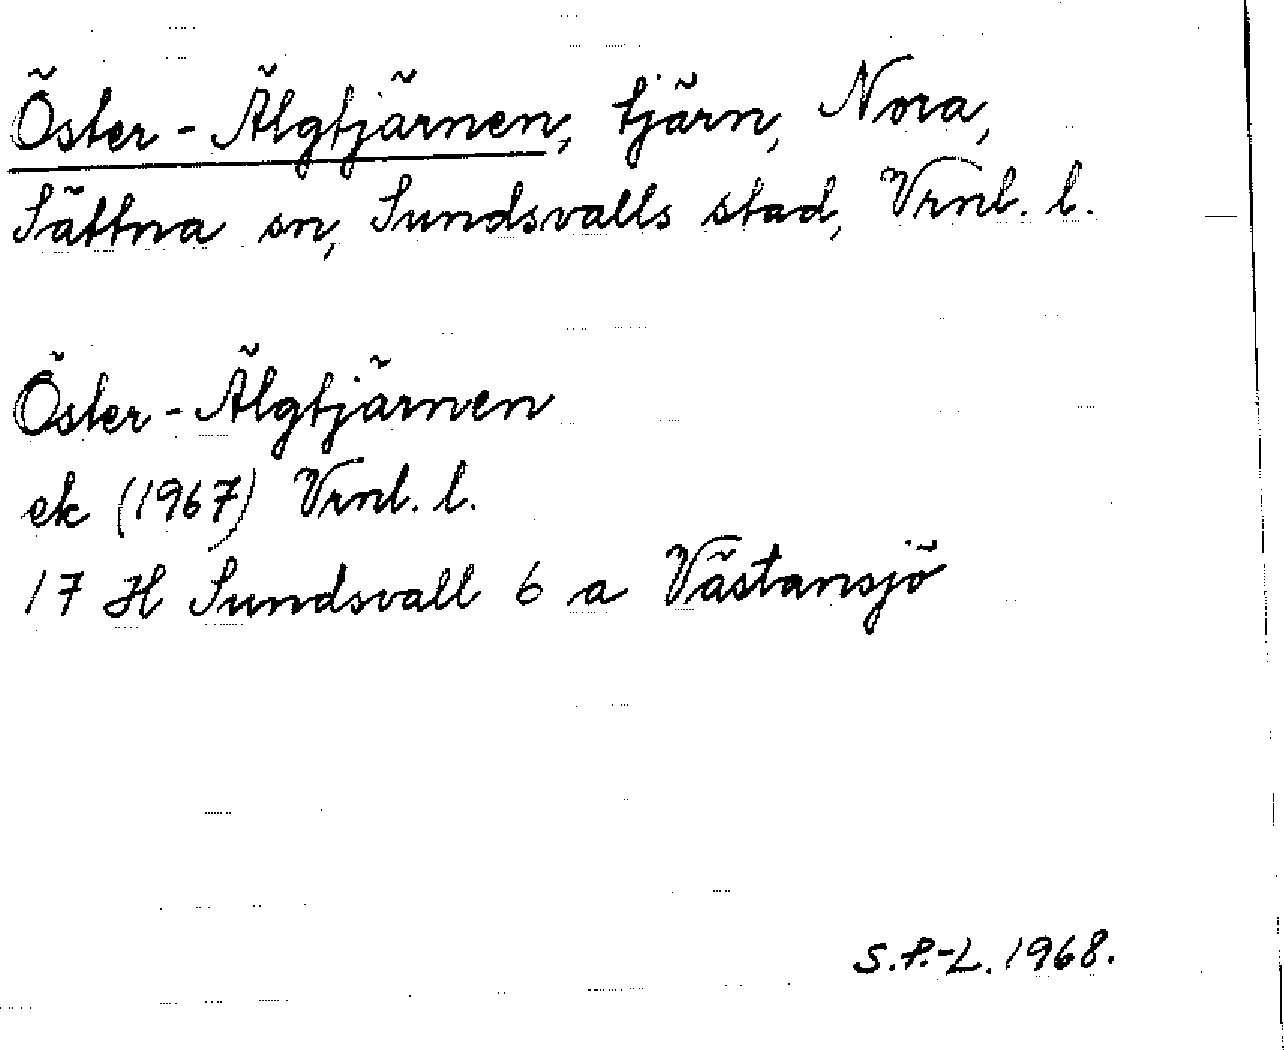 Öster-Älgtjärnen, tjärn, Nora,
Sättna sn, Sundsvalls stad, Vrnl. l.
Öster-Älgtjärnen
ek (1967) Vrnl. l.
17 H Sundsvall 6 a Västansjö
S.P.-L. 1968.